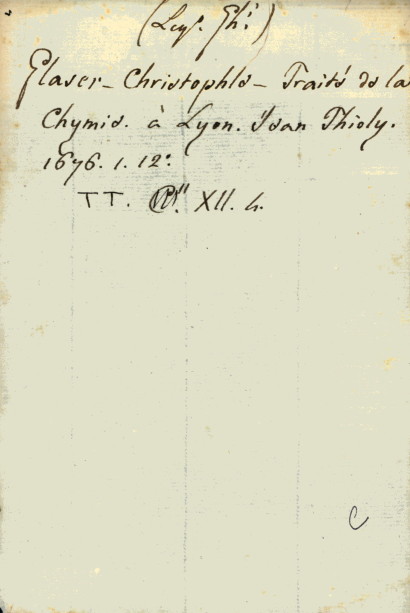 Glaser - Christophle - Traité de la
Chymie. à Lyon. Jean Thioly.
1676. 1. 12°.
TT. XII. 4.
C